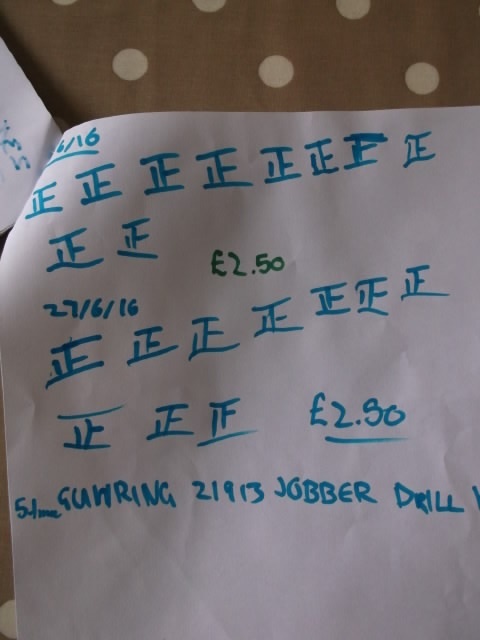 6/16
正 正 正 正 正 正 正 正
正 正
£2.50
27/6/16
正 正 正 正 正 正 正
正 正 正 £2.50
5.1mm GUHRING 21913 JOBBER DRILL